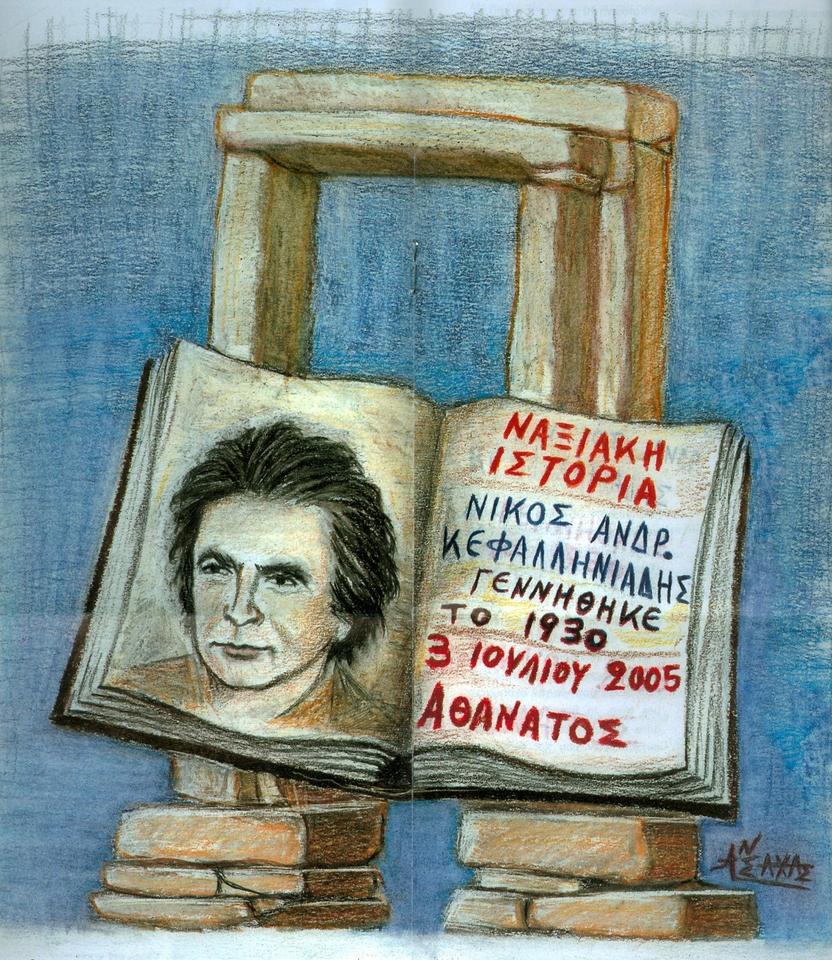 ΝΑΞΙΑΚΗ
ΙΣΤΟΡΙΑ
ΝΙΚΟΣ ΑΝΔΡ.
ΚΕΦΑΛΛΗΝΙΑΔΗΣ
ΓΕΝΝΗΘΗΚΕ
ΤΟ 1930
3 ΙΟΥΛΙΟΥ 2005
ΑΘΑΝΑΤΟΣ